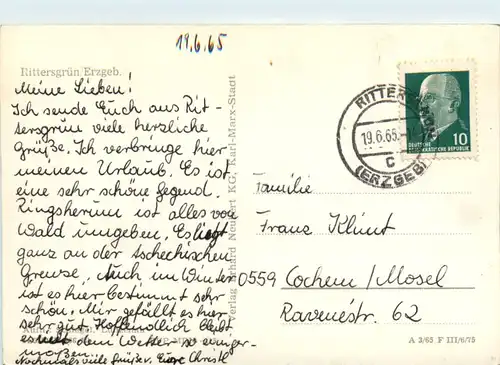 19.6.65
Rittersgrün/Erzgeb.
Meine Lieben!
Ich sende Euch aus Rit-
tersgrün viele herzliche
Grüße. Ich verbringe hier
meinen Urlaub. Es ist
eine sehr schöne Gegend.
Ringsherum ist alles von
Wald umgeben. Es liegt
ganz an der tschechischen
Grenze. Auch im Winter
ist es hier bestimmt sehr
schön. Mir gefällt es hier
sehr gut. Hoffendlich bleibt
es mit dem Wetter so einiger-
maßen.
Nochmals viele Grüße. Eure Christl
Verlag Erhard Neubert KG, Karl-Marx-Stadt
RITTERSGRÜN
19.6.65
c
(ERZGEB)
10
DEUTSCHE
DEMOKRATISCHE REPUBLIK
Familie
Franz Klint
0559 Cochem/Mosel
Ravenéstr. 62
A 3/65 F III/6/75